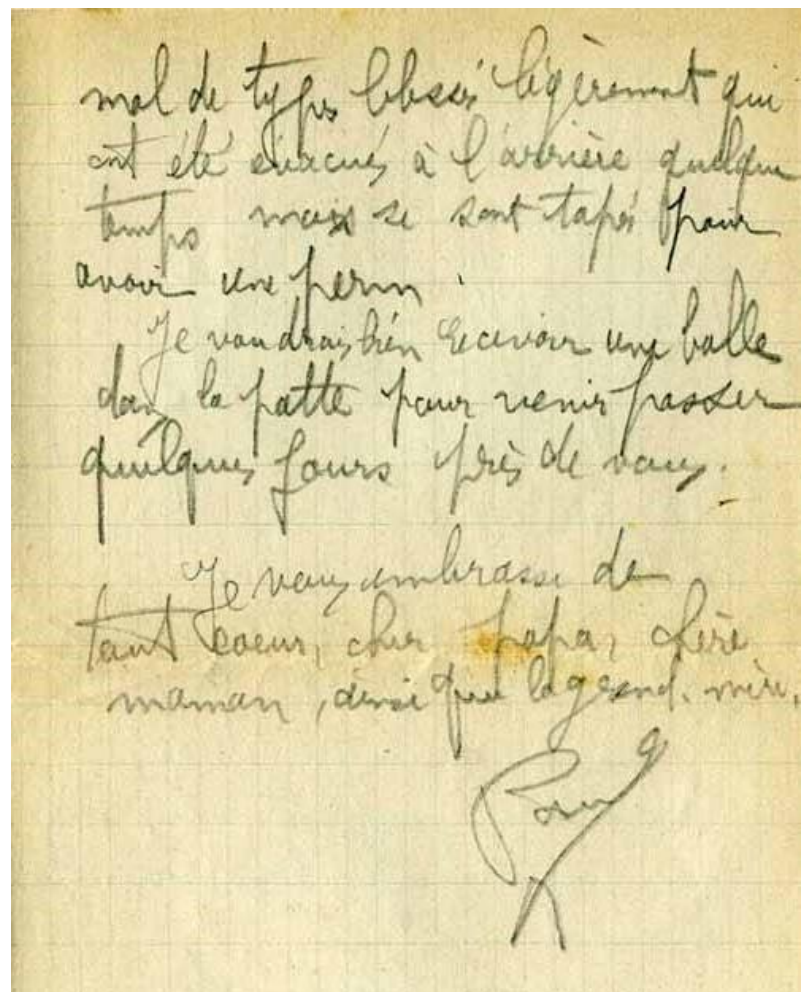 mal de types blessés légèrement qui
ont été évacués à l'arrière quelque
temps mais se sont tapés pour
avoir une perm.
Je voudrais bien recevoir une balle
dans la patte pour venir passer
quelques jours près de vous.
Je vous embrasse de
tout coeur, cher papa, chère
maman, ainsi que la grand-mère.
Paul